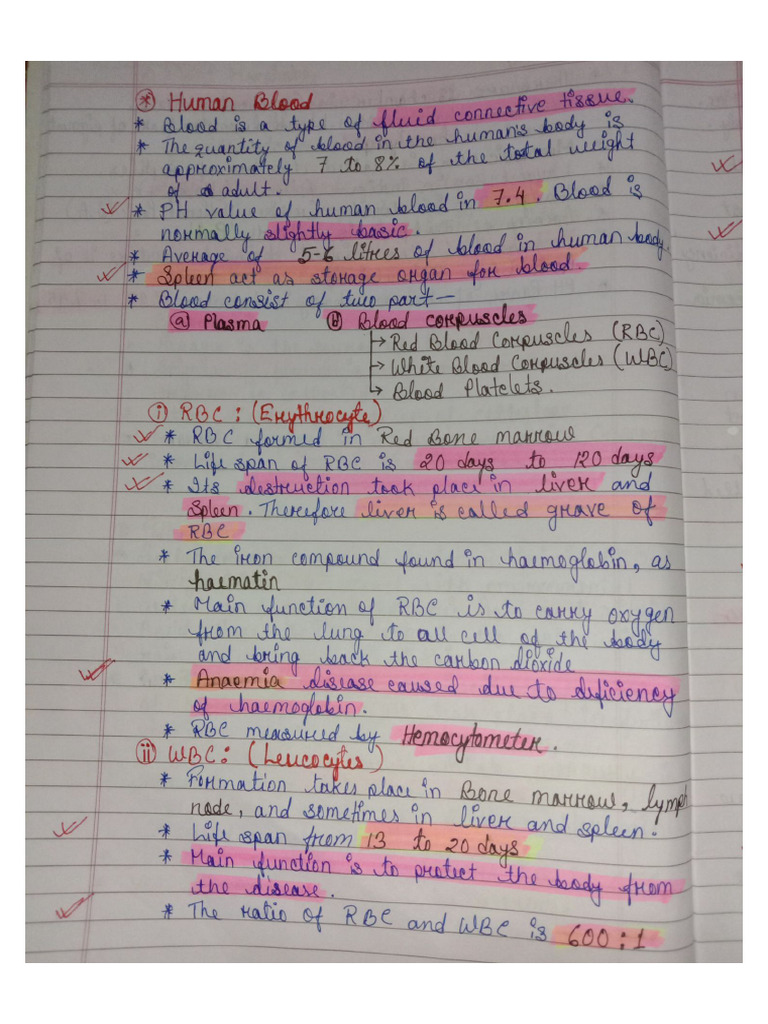 * Human Blood
* Blood is a type of fluid connective tissue.
* The quantity of blood in the human's body is
approximately 7 to 8% of the total weight
of a adult.
* PH value of human blood in 7.4. Blood is
normally slightly basic.
* Average of 5-6 litres of blood in human body.
* Spleen act as storage organ for blood.
* Blood consist of two part—
(a) Plasma (b) Blood corpuscles
→ Red Blood Corpuscles (RBC)
→ White Blood Corpuscles (WBC)
→ Blood Platelets.
(i) RBC: (Erythrocyte)
* RBC formed in Red Bone marrow
* Life span of RBC is 20 days to 120 days
* Its destruction took place in liver and
spleen. Therefore liver is called grave of
RBC
* The iron compound found in haemoglobin, as
haematin
* Main function of RBC is to carry oxygen
from the lung to all cell of the body
and bring back the carbon dioxide
* Anaemia disease caused due to dificiency
of haemoglobin.
* RBC measured by Hemocytometer.
(ii) WBC: (Leucocytes)
* Formation takes place in Bone marrow, lymph
node, and sometimes in liver and spleen.
* Life span from 13 to 20 days
* Main function is to protect the body from
the disease.
* The ratio of RBC and WBC is 600:1